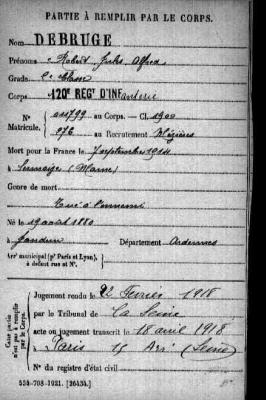 PARTIE À REMPLIR PAR LE CORPS.
Nom DEBRUGE
Prénoms Robert Jules Alfred
Grade 2e Classe
Corps 120E REGT D'INFanterie
N° 011799 au Corps. — Cl. 1900
Matricule. 276 au Recrutement Mézières
Mort pour la France le 7 septembre 1914
à Sermaize (Marne)
Genre de mort
Tué à l'ennemi
Né le 19 août 1880
à Landun Département Ardennes
Arrt municipal (pr Paris et Lyon),
à défaut rue et N°.
Cette partie
n'est pas à remplir
par le Corps.
Jugement rendu le 22 Février 1918
par le Tribunal de La Seine
acte ou jugement transcrit le 18 avril 1918
à Paris 15 Arrt (Seine)
N° du registre d'état civil
534-708-1921. [26434.]